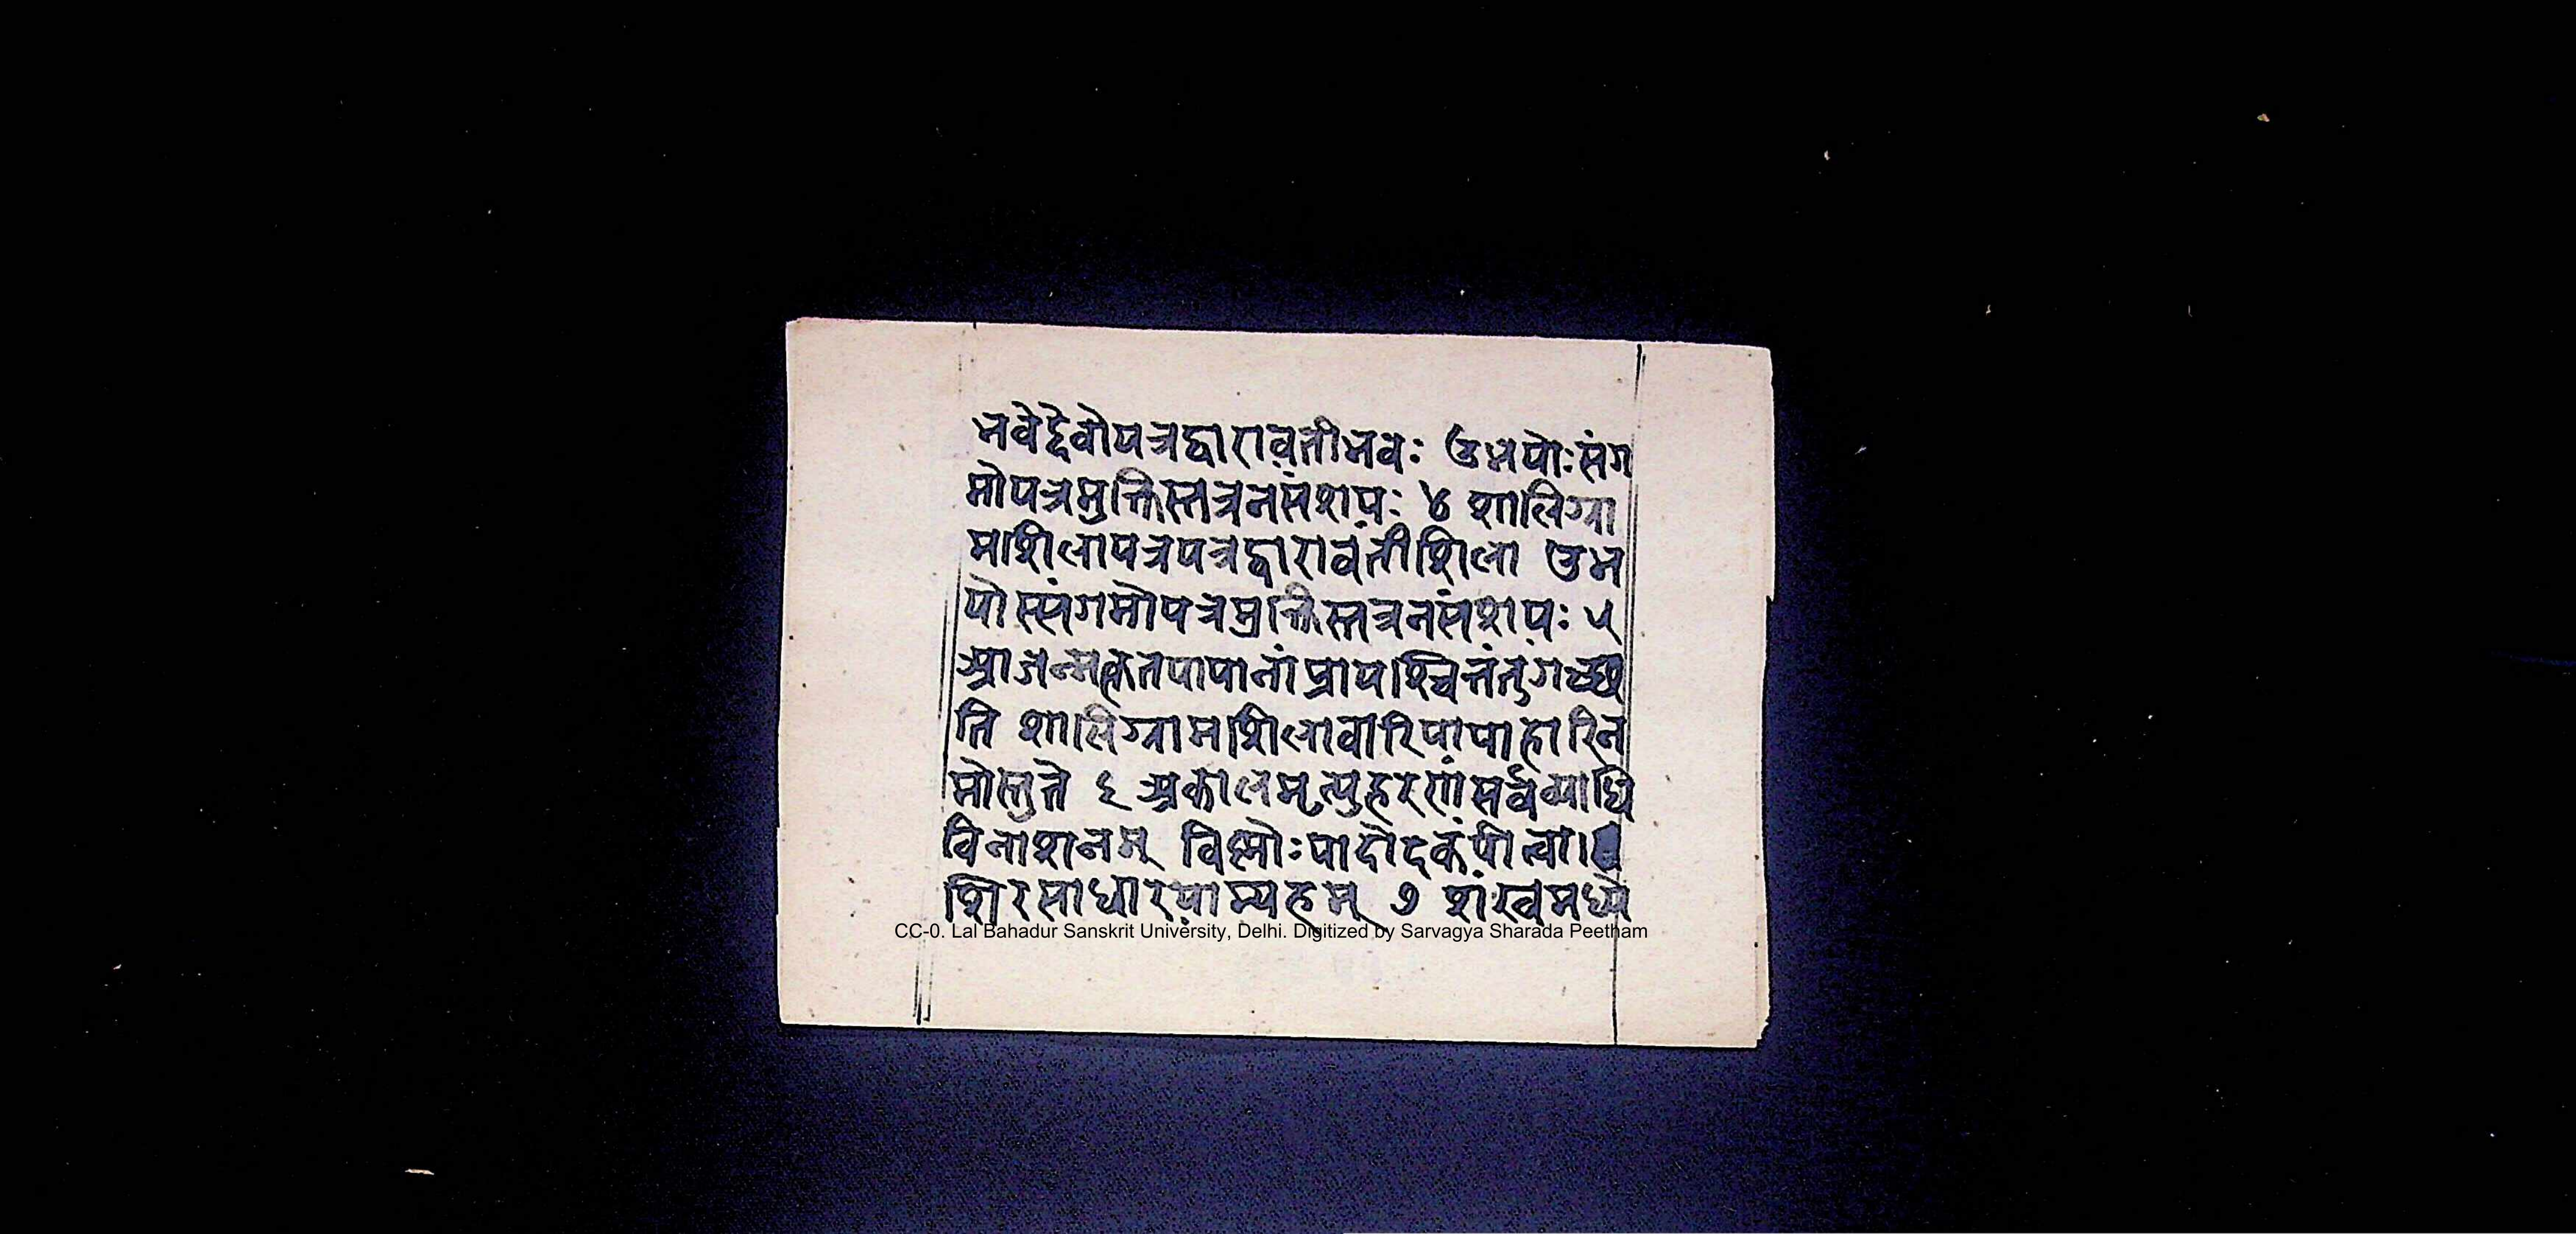 भवेद्देवोयत्रद्वारावतीभवः उभयोःसंग
मोयत्रमुक्तिस्तत्रनसंशयः ४ शालिग्रा
मशिलायत्रयत्रद्वारावतीशिला उभ
योस्संगमोयत्रमुक्तिस्तत्रनसंशयः ५
आजन्मकृतपापानांप्रायश्चित्तंतुगच्छ
ति शालिग्रामशिलावारिपापाहारिन
मोस्तुते ६ अकालमृत्युहरणंसर्वव्याधि
विनाशनम् विष्णोःपादोदकंपीत्वा।
शिरसाधारयाम्यहम् ७ शंखमध्ये
CC-0. Lal Bahadur Sanskrit University, Delhi. Digitized by Sarvagya Sharada Peetham